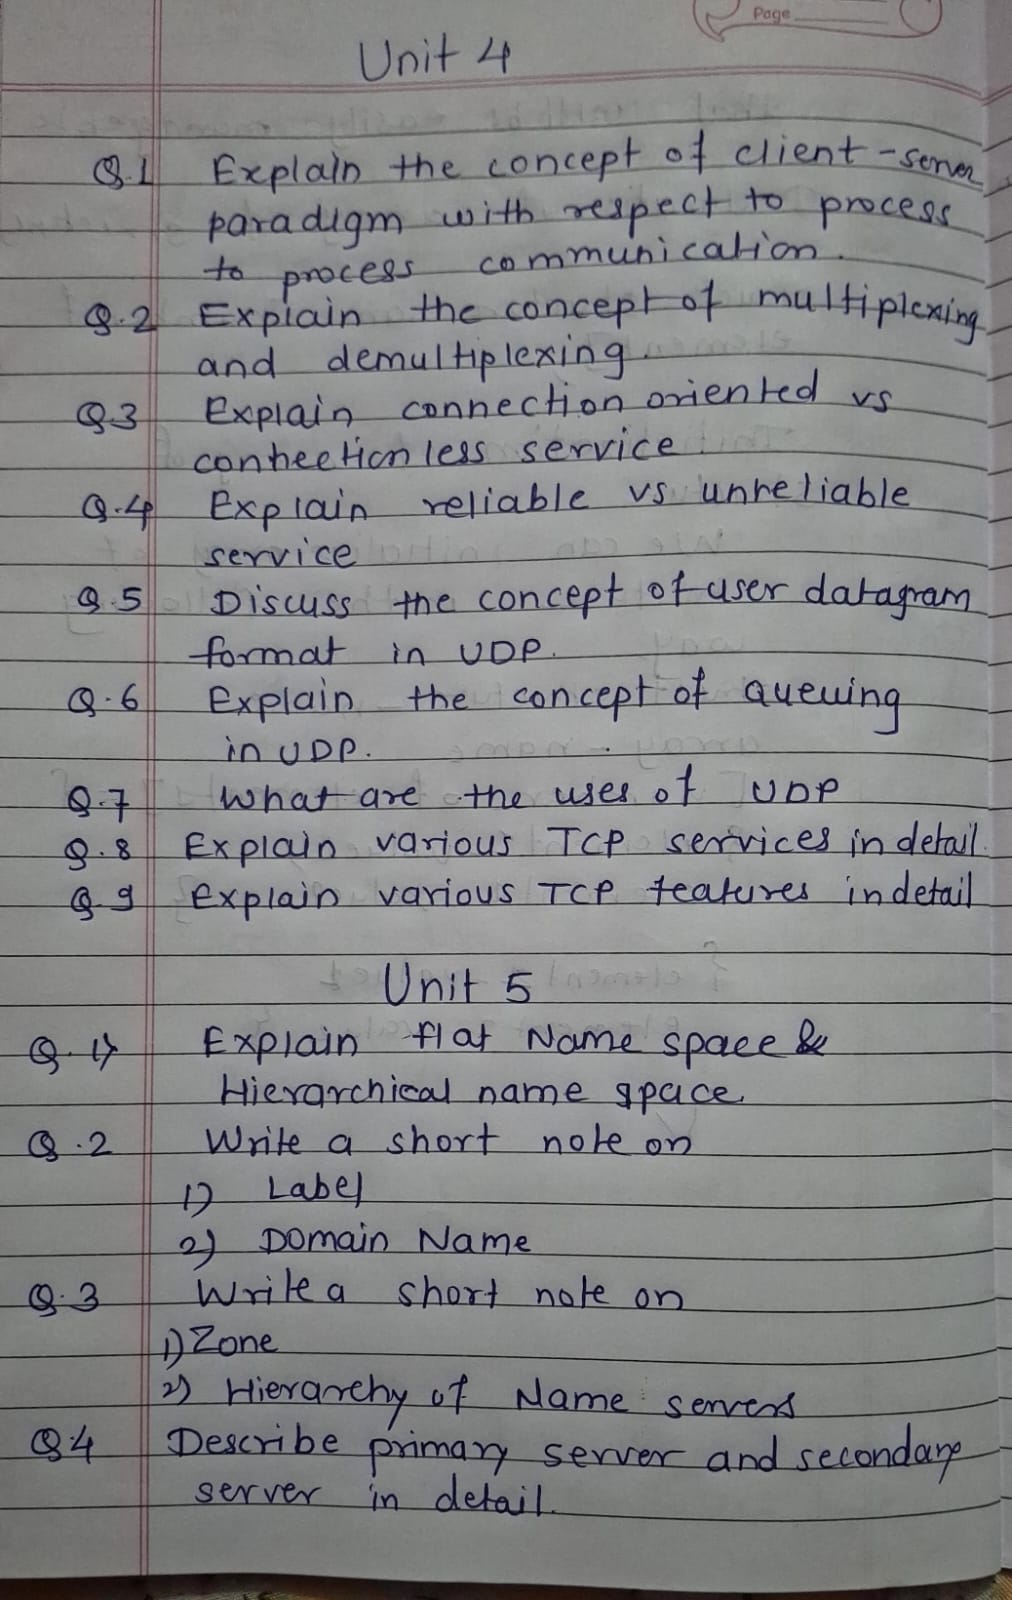 Page
Unit 4
Q.1 Explain the concept of client-server
paradigm with respect to process
to process communication.
Q.2 Explain the concept of multiplexing
and demultiplexing.
Q.3 Explain connection oriented vs
conheetion less service
Q.4 Explain reliable vs unreliable
service
Q.5 Discuss the concept of user datagram
format in UDP.
Q.6 Explain the concept of queuing
in UDP.
Q.7 What are the uses of UDP
Q.8 Explain various TCP services in detail.
Q.9 Explain various TCP features in detail
Unit 5
Q.1) Explain flat Name space &
Hierarchical name space
Q.2 Write a short note on
1) Label
2) Domain Name
Q.3 Write a short note on
1) Zone
2) Hierarchy of Name servers
Q.4 Describe primary server and secondary
server in detail.